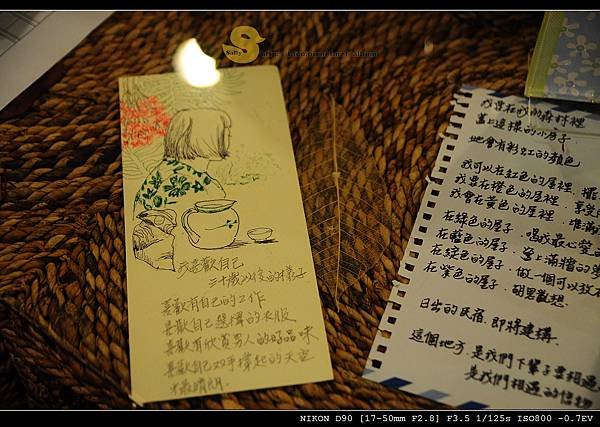 Sally
我喜歡自己
三十歲以後的樣子
喜歡有自己的工作
喜歡自己選擇的衣服
喜歡有欣賞男人的好品味
喜歡自己双手撐起的天空
我要在我的森林裡
蓋上這樣的小房子.
她會有彩虹的顏色
我可以在紅色的屋裡. 擺
我要在橙色的屋裡. 享受
我會在黃色的屋裡. 準備
在綠色的屋子. 唱我最心愛
在藍色的屋子. 寫上滿牆的
在靛色的屋子. 做一個可以放
在紫色的屋子. 胡思亂想.
日出的民宿. 即將建構.
這個地方. 是我們下輩子要相遇
是我們相遇的
NIKON D90 [17-50mm F2.8] F3.5 1/125s ISO800 -0.7EV